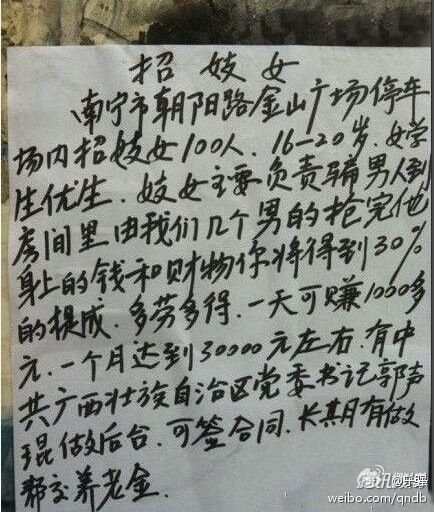 招妓女
南宁市朝阳路金山广场停车
场内招妓女100人.16-20岁.女学
生优生.妓女主要负责骗男人到
房间里.由我们几个男的抢完他
身上的钱和财物你将得到30%
的提成.多劳多得.一天可赚1000多
元.一个月达到30000元左右.有中
共广西壮族自治区党委书记郭声
琨做后台.可签合同.长其月有做
帮交养老金.
weibo.com/qndb